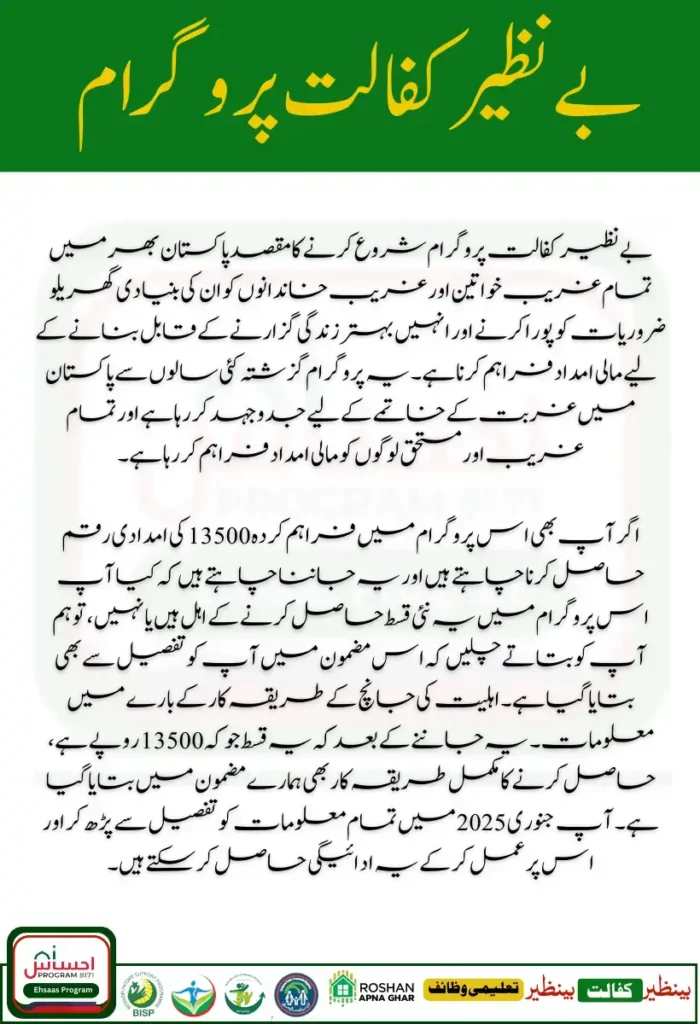 بے نظیر کفالت پروگرام
بے نظیر کفالت پروگرام شروع کرنے کا مقصد پاکستان بھر میں
تمام غریب خواتین اور غریب خاندانوں کو ان کی بنیادی گھریلو
ضروریات کو پورا کرنے اور انہیں بہتر زندگی گزارنے کے قابل بنانے کے
لیے مالی امداد فراہم کرنا ہے۔ یہ پروگرام گزشتہ کئی سالوں سے پاکستان
میں غربت کے خاتمے کے لیے جدوجہد کر رہا ہے اور تمام
غریب اور مستحق لوگوں کو مالی امداد فراہم کر رہا ہے۔
اگر آپ بھی اس پروگرام میں فراہم کردہ 13500 کی امدادی رقم
حاصل کرنا چاہتے ہیں اور یہ جاننا چاہتے ہیں کہ کیا آپ
اس پروگرام میں یہ نئی قسط حاصل کرنے کے اہل ہیں یا نہیں، تو ہم
آپ کو بتاتے چلیں کہ اس مضمون میں آپ کو تفصیل سے بھی
بتایا گیا ہے۔ اہلیت کی جانچ کے طریقہ کار کے بارے میں
معلومات۔ یہ جاننے کے بعد کہ یہ قسط جو کہ 13500 روپے ہے،
حاصل کرنے کا مکمل طریقہ کار بھی ہمارے مضمون میں بتایا گیا
ہے۔ آپ جنوری 2025 میں تمام معلومات کو تفصیل سے پڑھ کر اور
اس پر عمل کر کے یہ ادائیگی حاصل کر سکتے ہیں۔
احساس
PROGRAM 8171
Ehsaas Program
BISP
ROSHAN
APNA GHAR
بینظیر تعلیمی وظائف
بینظیر کفالت